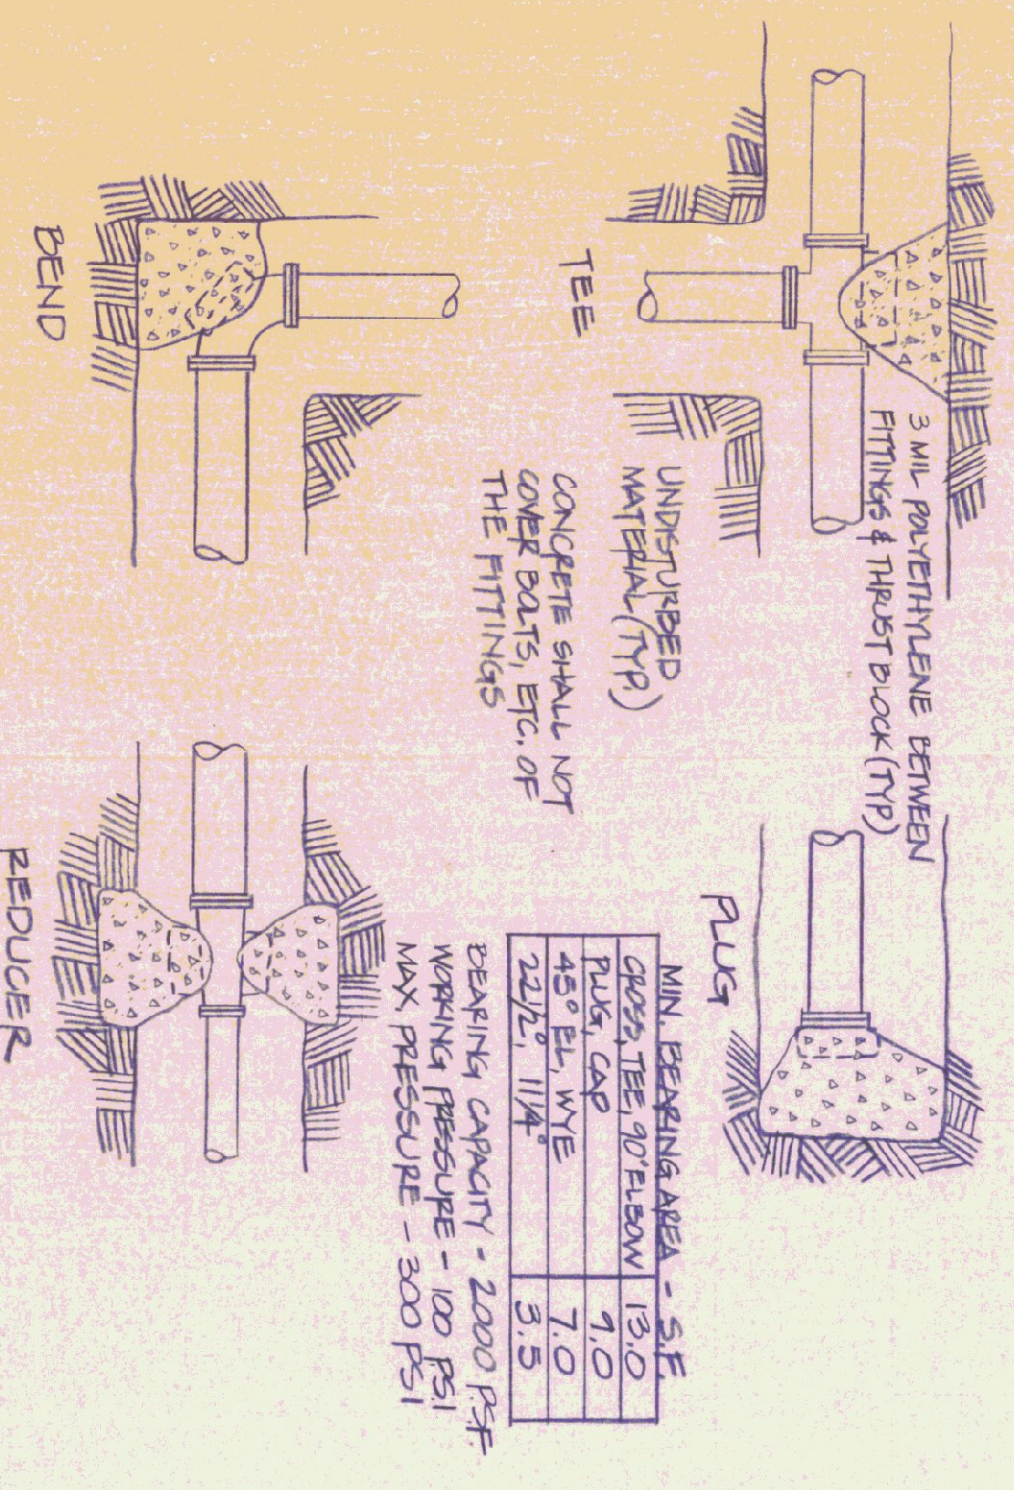 3 MIL POLYETHYLENE BETWEEN
FITTINGS & THRUST BLOCK (TYP)
TEE
PLUG
UNDISTURBED
MATERIAL (TYP.)
CONCRETE SHALL NOT
COVER BOLTS, ETC. OF
THE FITTINGS
MIN. BEARING AREA - S.F.
CROSS, TEE, 90° ELBOW 13.0
PLUG, CAP 9.0
45° EL, WYE 7.0
22 1/2°, 11 1/4° 3.5
BEARING CAPACITY - 2000 PSF
WORKING PRESSURE - 100 PSI
MAX PRESSURE - 300 PSI
BEND
REDUCER